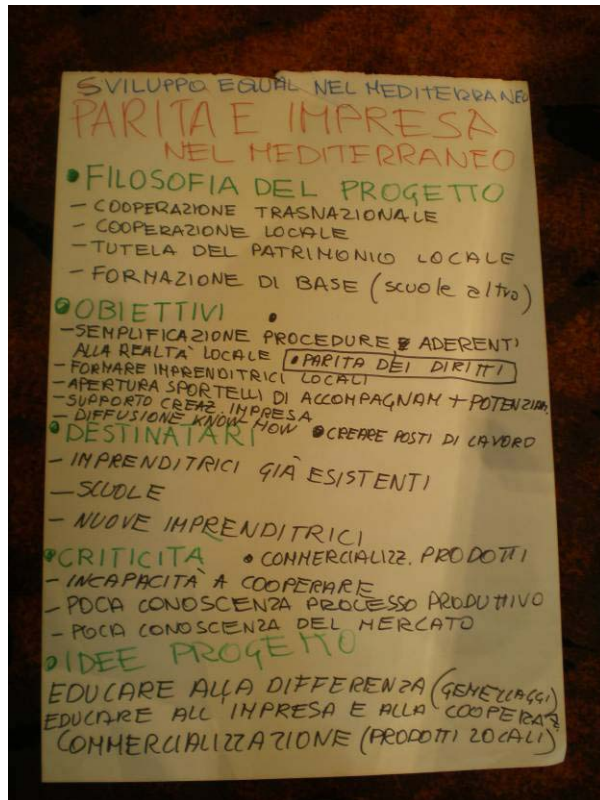 SVILUPPO EQUAL NEL MEDITERRANEO
PARITA E IMPRESA
NEL MEDITERRANEO
• FILOSOFIA DEL PROGETTO
- COOPERAZIONE TRASNAZIONALE
- COOPERAZIONE LOCALE
- TUTELA DEL PATRIMONIO LOCALE
- FORMAZIONE DI BASE (scuole altro)
• OBIETTIVI •
- SEMPLIFICAZIONE PROCEDURE E ADERENTI
ALLA REALTÀ LOCALE • PARITA DEI DIRITTI
- FORMARE IMPRENDITRICI LOCALI
- APERTURA SPORTELLI DI ACCOMPAGNAM + POTENZIAM.
- SUPPORTO CREAZ. IMPRESA
- DIFFUSIONE KNOW HOW
• DESTINATARI • CREARE POSTI DI LAVORO
- IMPRENDITRICI GIÀ ESISTENTI
- SCUOLE
- NUOVE IMPRENDITRICI
• CRITICITÀ • COMMERCIALIZZ. PRODOTTI
- INCAPACITÀ A COOPERARE
- POCA CONOSCENZA PROCESSO PRODUTTIVO
- POCA CONOSCENZA DEL MERCATO
• IDEE PROGETTO
EDUCARE ALLA DIFFERENZA (GEMELLAGGI)
EDUCARE ALL IMPRESA E ALLA COOPERAZ.
COMMERCIALIZZAZIONE (PRODOTTI LOCALI)